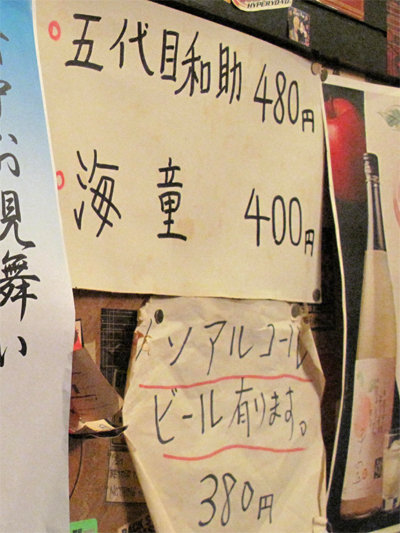 五代目和助 480円
海童 400円
ノンアルコール
ビール有ります。
380円
お見舞い
HYPERYOYO